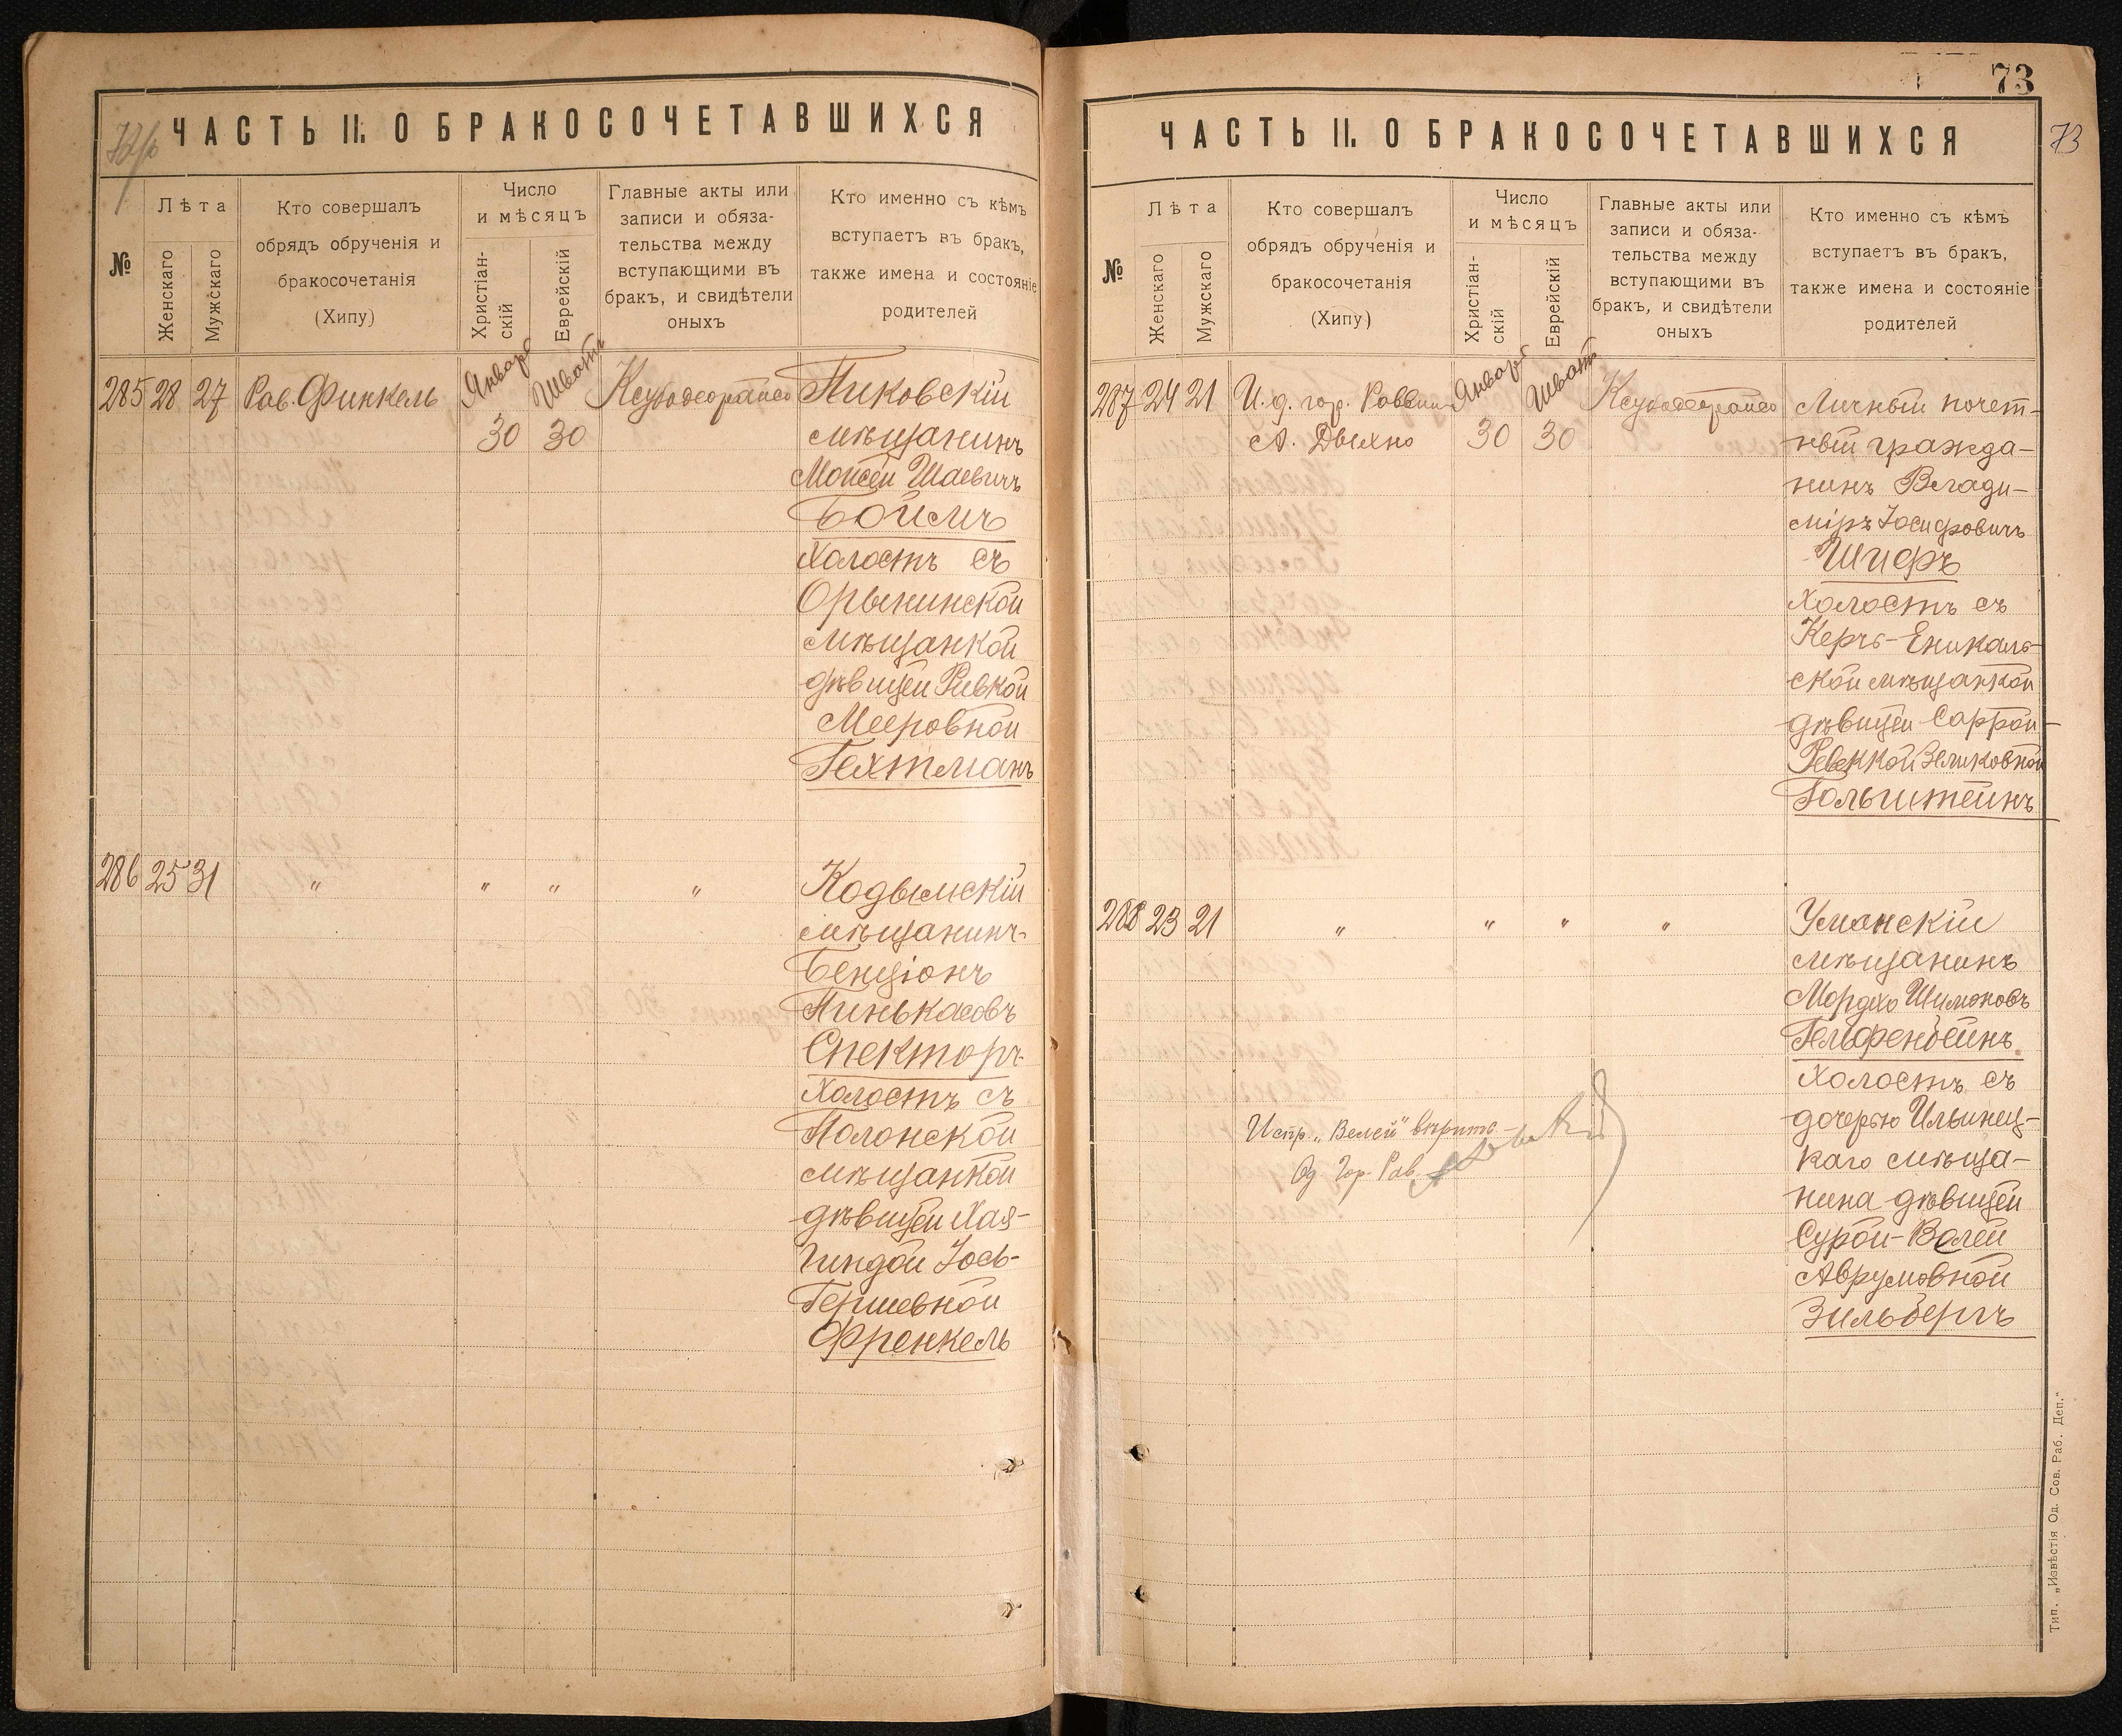 72/б
ЧАСТЬ II. О БРАКОСОЧЕТАВШИХСЯ
№
Лѣта
Женскаго
Мужскаго
Кто совершалъ
обрядъ обрученія и
бракосочетанія
(Хипу)
Число
и мѣсяцъ
Христіан-
скій
Еврейскій
Главные акты или
записи и обяза-
тельства между
вступающими въ
бракъ, и свидѣтели
оныхъ
Кто именно съ кѣмъ
вступаетъ въ бракъ,
также имена и состояніе
родителей
285 28 27 Рав. Финкель Январь Шватъ Ксубодеорайсо Пиковскій
30 30 мѣщанинъ
Моисей Шаевичъ
Боймъ
холостъ съ
Орынинской
мѣщанкой
дѣвицей Ривкой
Мееровной
Гехтманъ
286 25 31 " " " " Кодымскій
мѣщанинъ
Бенціонъ
Пинькасовъ
Спекторъ
холостъ съ
Полонской
мѣщанкой
дѣвицей Хая-
Гиндой Іось-
Гершевной
Френкель
73
73
ЧАСТЬ II. О БРАКОСОЧЕТАВШИХСЯ
№
Лѣта
Женскаго
Мужскаго
Кто совершалъ
обрядъ обрученія и
бракосочетанія
(Хипу)
Число
и мѣсяцъ
Христіан-
скій
Еврейскій
Главные акты или
записи и обяза-
тельства между
вступающими въ
бракъ, и свидѣтели
оныхъ
Кто именно съ кѣмъ
вступаетъ въ бракъ,
также имена и состояніе
родителей
287 24 21 И. д. гор. Раввин Январь Шватъ Ксубодеорайсо Личный почет-
А. Дыхно 30 30 ный гражда-
нинъ Влади-
міръ Іосифовичъ
Шифъ
холостъ съ
Керчь-Еникаль-
ской мѣщанкой
дѣвицей Саррой-
Ревеккой Зеликовной
Гольштейнъ
288 23 21 " " " " Уманскій
мѣщанинъ
Мордхо Шимоновъ
Гельфенбейнъ
холостъ съ
дочерью Ильинец-
каго мѣща-
нина дѣвицей
Сурой-Велей
Аврумовной
Зильбергъ
Испр. "Велей" вѣрить
Од Гор. Рав.
Тип. „Извѣстія Од. Сов. Раб. Деп.“